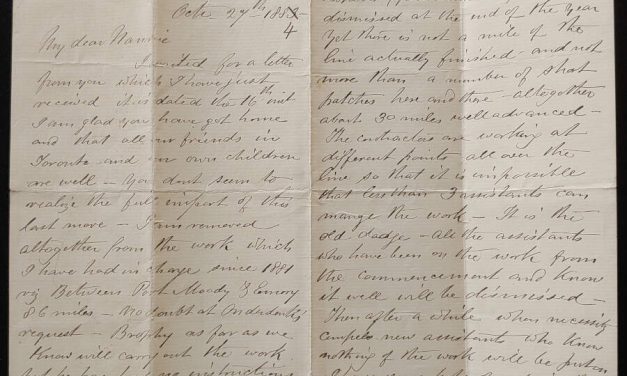 Octr 27th 1883
4
My dear Nannie
I waited for a letter
from you which I have just
received it is dated the 16th inst
I am glad you have got home
and that all our friends in
Toronto and our own children
are well – You dont seem to
realize the full import of this
last move – I am removed
altogether from the work which
I have had in charge since 1881
viz Between Port Moody & Emory
86 miles – No doubt at Onderdonk's
request – Brophy as far as we
know will carry out the work
but he has no instructions
dismissed at the end of the year
Yet there is not a mile of the
line actually finished – and not
more than a number of short
patches here and there – altogether
about 30 miles well advanced –
The contractors are working at
different points all over the
line so that it is impossible
that less than 3 assistants can
mange the work – It is the
old dodge – All the assistants
who have been on the work from
the commencement and know
it well will be dismissed –
Then after a while when necessity
compels new assistants who know
nothing of the work will be put on